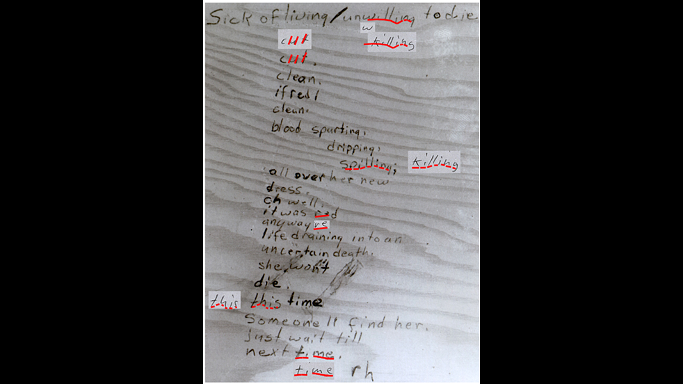 Sick of living/unwilling to die
w
cut killing
cut.
clean.
if red/
clean.
blood spurting.
dripping,
spilling; killing
all over her new
dress.
oh well.
it was red
anyway re
life draining into an
uncertain death.
she won't
die.
this this time
Someonell find her.
just wait till
next time.
time rh